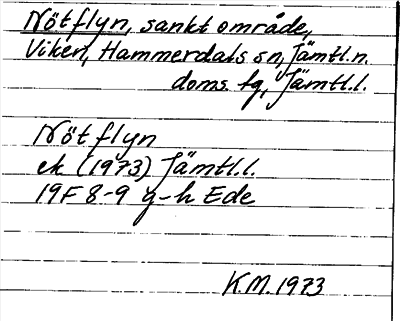 Nötflyn, sankt område,
Viken, Hammerdals sn, Jämtl.n.
doms. tg, Jämtl.l.
Nötflyn
ek (1973) Jämtl.l.
19F 8-9 g-h Ede
K.M. 1973